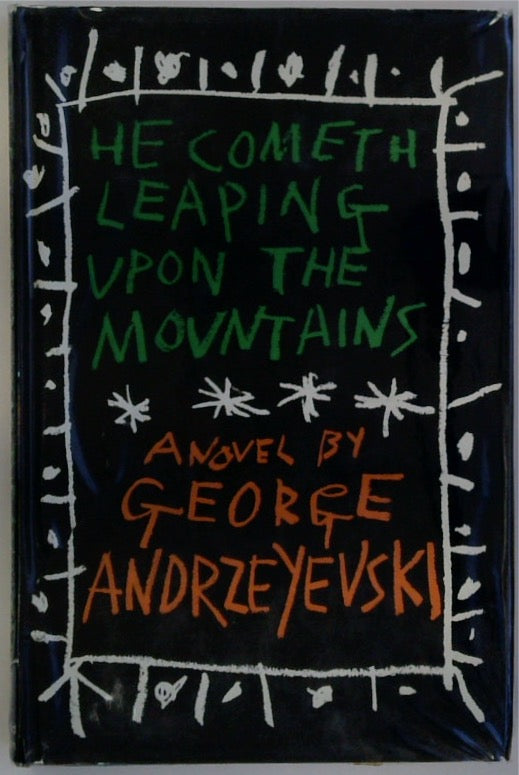 HE COMETH
LEAPING
UPON THE
MOUNTAINS
A NOVEL BY
GEORGE
ANDRZEYEVSKI